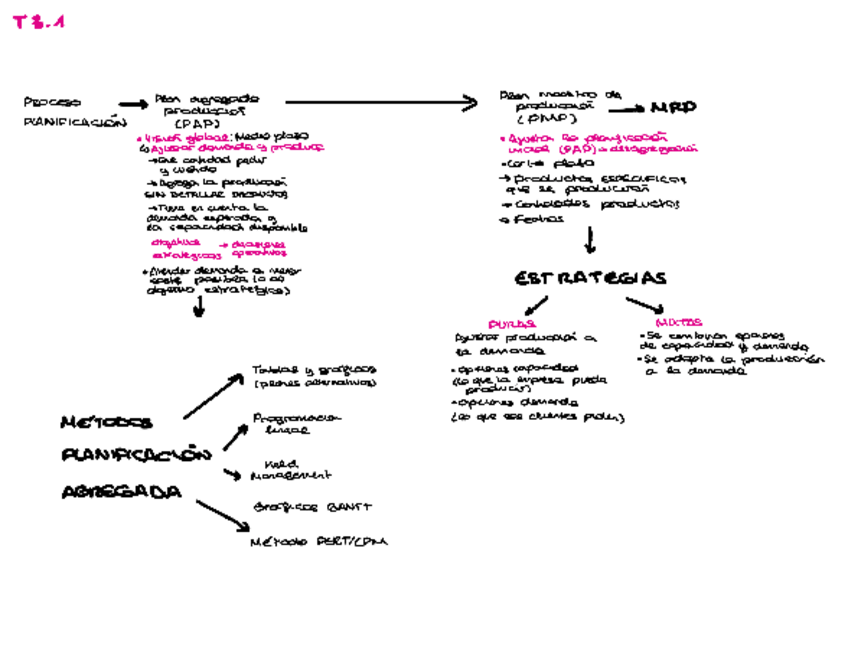 T3.1
PROCESO
PLANIFICACIÓN
Plan agregado
producción
(PAP)
• Visión global: Medio plazo
↳ Ajustar demanda y producc
→ Que cantidad pedir
y cuando
→ Agrega la producción
SIN DETALLAR PRODUCTOS
→ Tiene en cuenta la
demanda esperada y
la capacidad disponible
objetivos → decisiones
estratégicos operativas
• Atender demanda a menor
coste posible
objetivo estratégico)
Plan maestro de
producción
(PMP)
→ MRP
• Ajustar la planificación
inicial (PAP) → desagregación
• Corto plazo
→ Productos ESPECÍFICOS
que se producirán
→ Cantidades productos
→ Fechas
ESTRATEGIAS
PURAS
Ajustar producción a
la demanda
• Opciones capacidad
(lo que la empresa pueda
producir)
• Opciones demanda
(lo que los clientes piden)
MIXTAS
• Se combinan opciones
de capacidad y demanda
• Se adapta la producción
a la demanda
MÉTODOS
PLANIFICACIÓN
AGREGADA
Tablas y gráficos
(planes alternativos)
Programación
lineal
Yield
Management
Gráficos GANTT
Método PERT/CPM